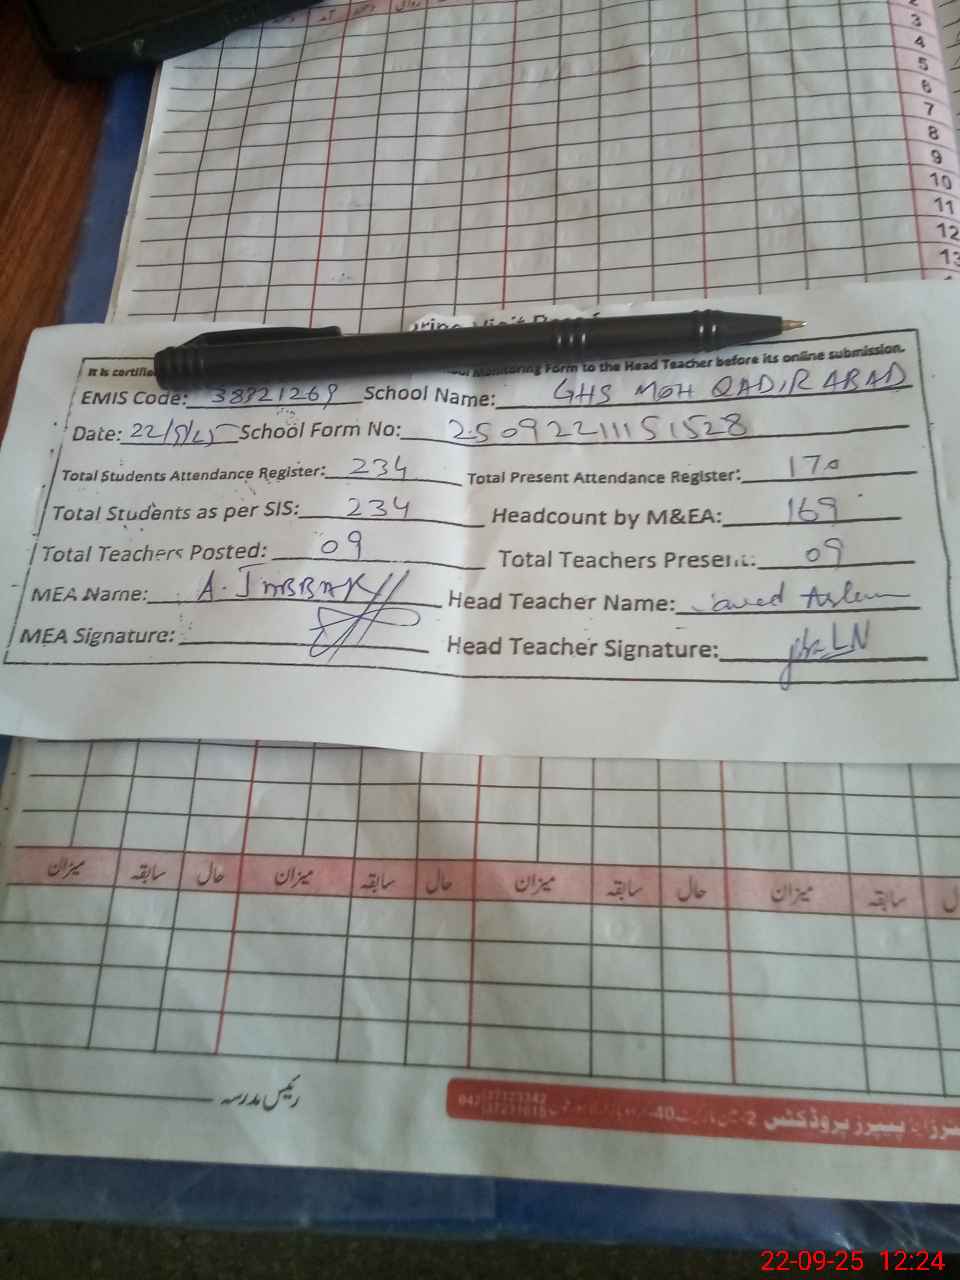 روال
آمد
3
4
5
6
7
8
9
10
11
12
13
It is certifie
Monitoring Form to the Head Teacher before its online submission.
EMIS Code: 38321269 School Name: GHS MOH QADIR ABAD
Date: 22/9/25 School Form No: 2509221115 1528
Total Students Attendance Register: 234 Total Present Attendance Register: 170
Total Students as per SIS: 234 Headcount by M&EA: 169
Total Teachers Posted: 09 Total Teachers Present: 09
MEA Name: Head Teacher Name: Javed Aslam
MEA Signature: Head Teacher Signature:
میزان سابقہ حال میزان سابقہ حال میزان سابقہ حال میزان سابقہ
رئیس مدرسہ
پیپرز پروڈکٹس
22-09-25 12:24